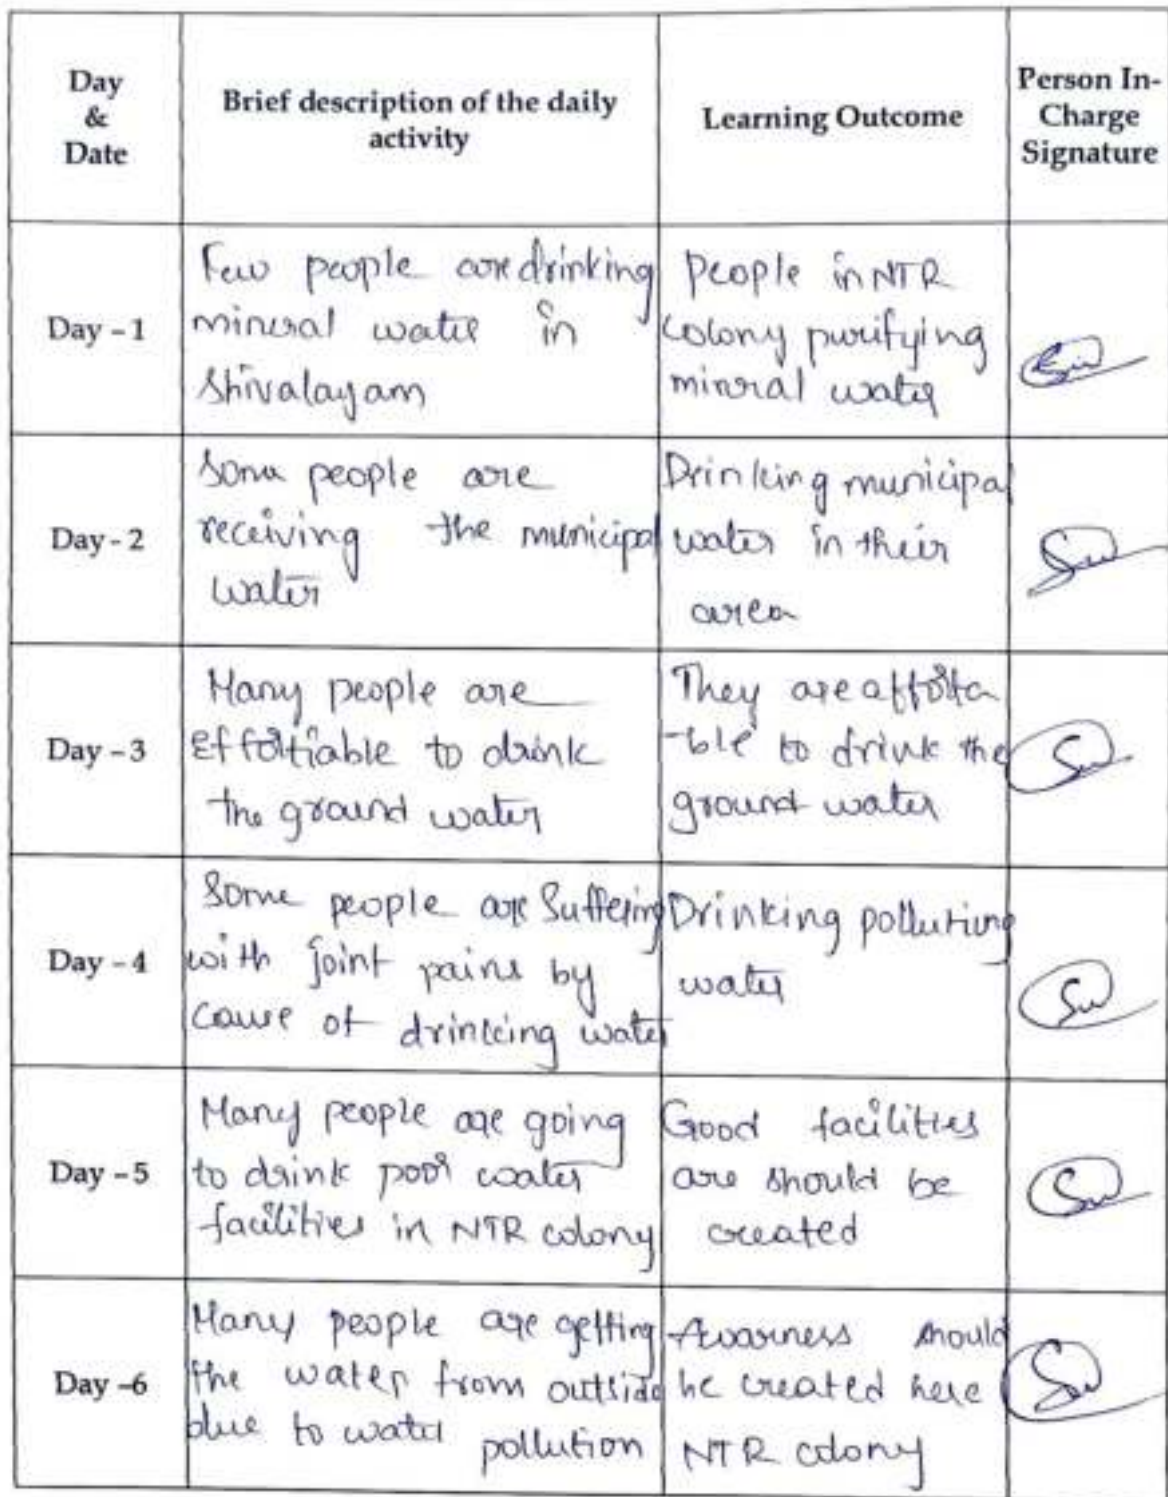 Day
&
Date
Brief description of the daily
activity
Learning Outcome
Person In-
Charge
Signature
Day - 1
Few people are drinking
mineral water in
Shivalayam
People in NTR
colony purifying
minral water
Day - 2
Some people are
receiving the municipal
water
Drinking municipal
water in their
area
Day - 3
Many people are
Effortiable to drink
the ground water
They are afforta
-ble to drink the
ground water
Day - 4
Some people are Suffering
with joint pains by
cause of drinking water
Drinking polluting
water
Day - 5
Many people are going
to drink poor water
facilities in NTR colony
Good facilities
are should be
created
Day -6
Many people are getting
the water from outside
due to water pollution
Awarness should
be created here
NTR colony